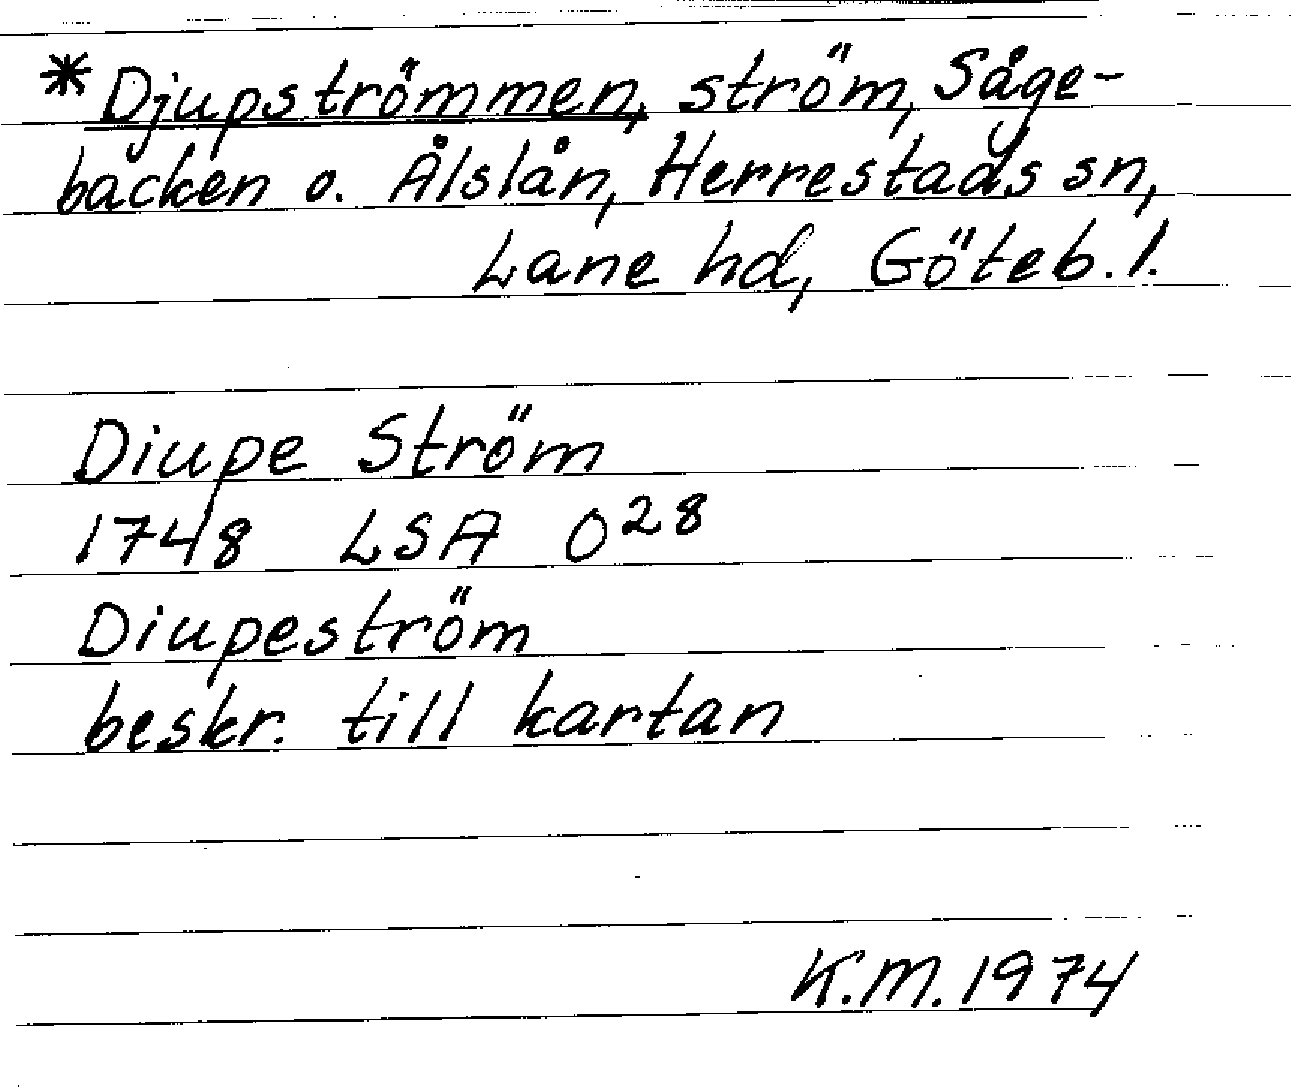 * Djupströmmen, ström, Såge-
backen o. Ålslån, Herrestads sn,
Lane hd, Göteb. l.
Diupe Ström
1748 LSA O28
Diupeström
beskr. till kartan
K.M. 1974